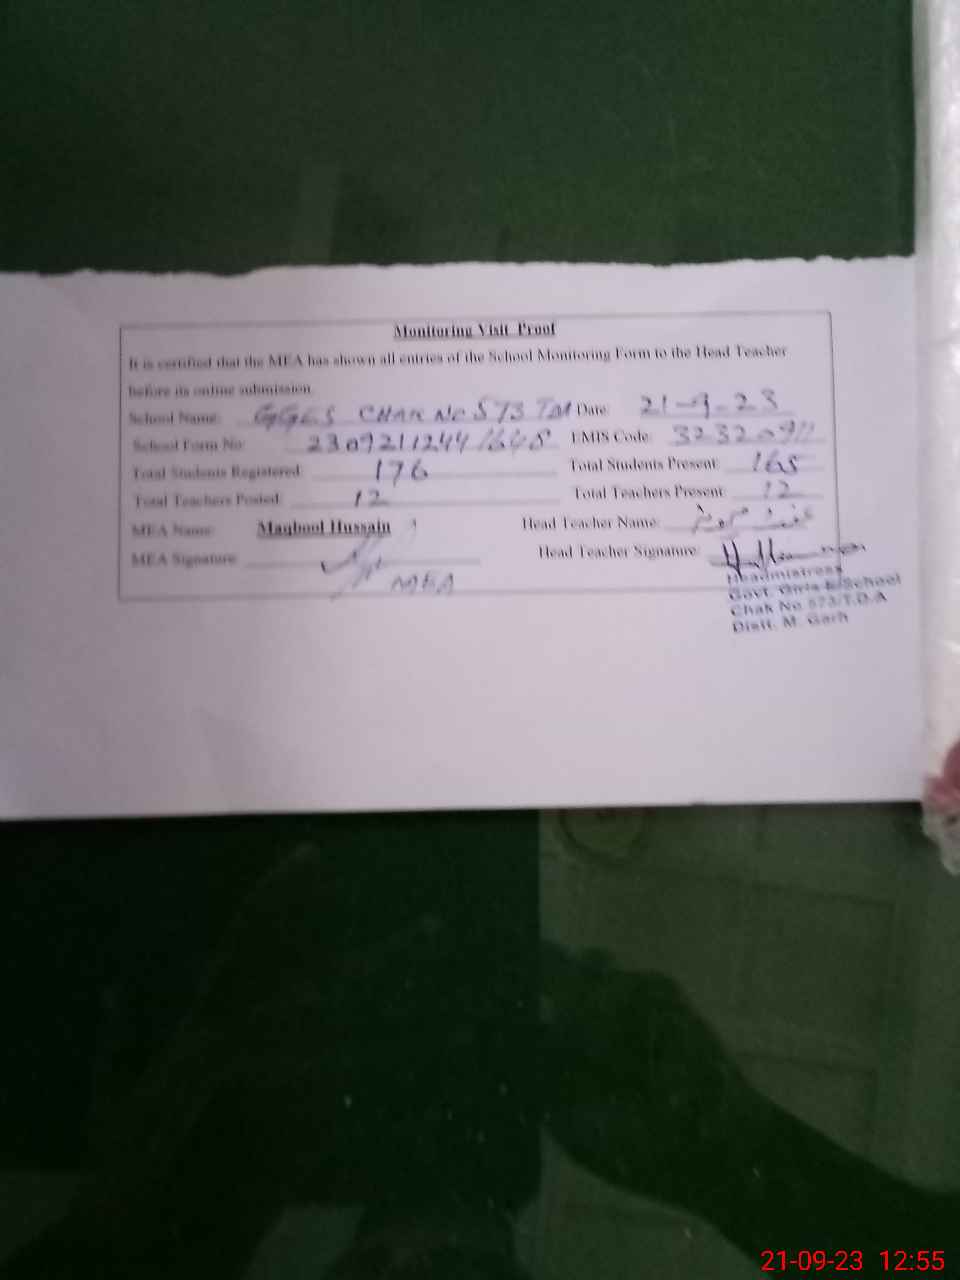 Monitoring Visit Proof
It is certified that the MEA has shown all entries of the School Monitoring Form to the Head Teacher
before its online submission.
School Name: GGES CHAK NO 573 TDA Date: 21-9-23
School Form No: 2309211244/648 EMIS Code: 32320911
Total Students Registered: 176 Total Students Present: 165
Total Teachers Posted: 12 Total Teachers Present: 12
MEA Name: Maqbool Hussain Head Teacher Name:
MEA Signature: MEA Head Teacher Signature:
Headmistress
Govt. Girls E/School
Chak No 573/T.D.A
Distt. M. Garh
21-09-23 12:55